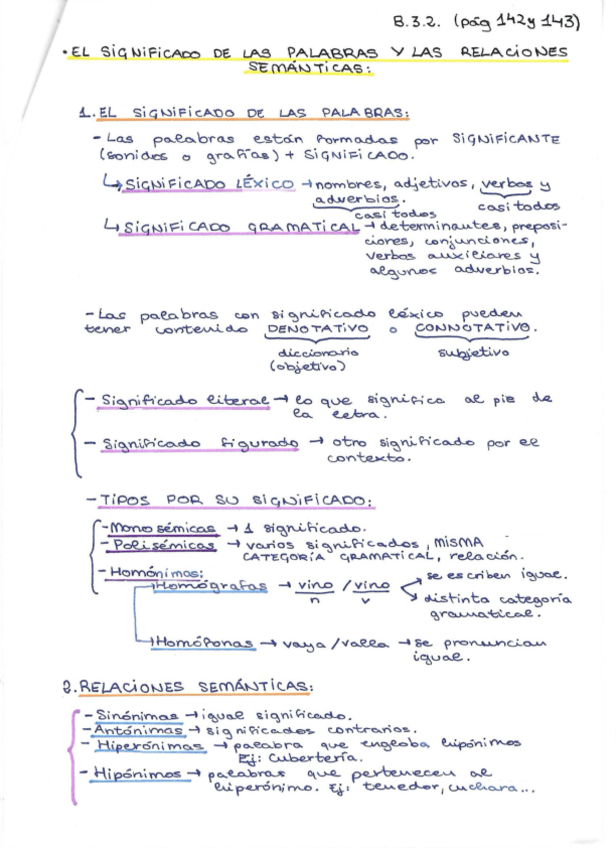 B.3.2. (pág 142 y 143)
• EL SIGNIFICADO DE LAS PALABRAS Y LAS RELACIONES
SEMÁNTICAS:
1. EL SIGNIFICADO DE LAS PALABRAS:
- Las palabras están formadas por SIGNIFICANTE
(sonidos o grafías) + SIGNIFICADO.
↳ SIGNIFICADO LÉXICO → nombres, adjetivos, verbos y
adverbios.
casi todos
casi todos
↳ SIGNIFICADO GRAMATICAL → determinantes, preposi-
ciones, conjunciones,
verbos auxiliares y
algunos adverbios.
- Las palabras con significado léxico pueden
tener contenido DENOTATIVO o CONNOTATIVO.
diccionario subjetivo
(objetivo)
- Significado literal → lo que significa al pie de
la letra.
- Significado figurado → otro significado por el
contexto.
- TIPOS POR SU SIGNIFICADO:
- Monosémicas → 1 significado.
- Polisémicas → varios significados, MISMA
CATEGORÍA GRAMATICAL, relación.
- Homónimas:
Homógrafas → vino / vino
n v
se escriben igual.
distinta categoría
gramatical.
Homófonas → vaya / valla → se pronuncian
igual.
2. RELACIONES SEMÁNTICAS:
- Sinónimas → igual significado.
- Antónimas → significados contrarios.
- Hiperónimas → palabra que engloba hipónimos
Ej: Cubertería.
- Hipónimos → palabras que pertenecen al
hiperónimo. Ej: tenedor, cuchara...